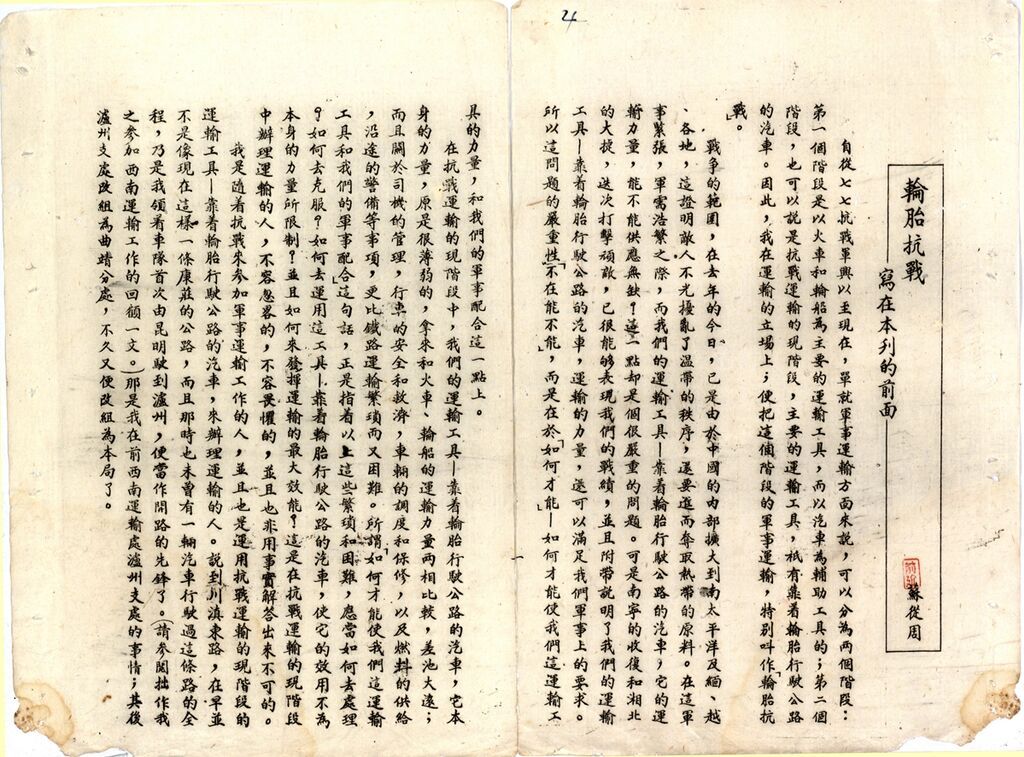 4
輪胎抗戰
——寫在本刋的前面
蘇從周
自從七七抗戰軍興以至現在，單就軍事運輸方面來說，可以分為兩個階段：
第一個階段是以火車和輪船為主要的運輸工具，而以汽車為輔助工具的；第二個
階段，也可以說是抗戰運輸的現階段，主要的運輸工具，祇有靠着輪胎行駛公路
的汽車。因此，我在運輸的立場上；便把這個階段的軍事運輸，特别叫作「輪胎抗
戰」。
戰爭的範圍，在去年的今日，已是由於中國的内部擴大到南太平洋及緬、越
、各地，這證明敵人不光擾亂了溫帶的秩序，還要進而奪取熱帶的原料。在這軍
事緊張，軍需浩繁之際，而我們的運輸工具—靠着輪胎行駛公路的汽車；它的運
輸力量，能不能供應無缺？這一點却是個很嚴重的問題。可是南寧的收復和湘北
的大捷，迭次打擊頑敵，已很能够表現我們的戰績，並且附帶説明了我們的運輸
工具—靠着輪胎行駛公路的汽車，運輸的力量，還可以滿足我們軍事上的要求。
所以這問題的嚴重性，「不在能不能」，而是在於「如何才能」—如何才能使我們這運輸工
具的力量，和我們的軍事配合這一點上。
在抗戰運輸的現階段中，我們的運輸工具—靠着輪胎行駛公路的汽車，它本
身的力量，原是很薄弱的，拿來和火車、輪船的運輸力量兩相比較，差池太遠；
而且關於司機的管理，行車的安全和救濟，車輛的調度和保修，以及燃料的供給
，沿途的警備等事項，更比鐵路運輸繁瑣而又困難。所謂「如何才能使我們這運輸
工具和我們的軍事配合」這句話，正是指着以上這些繁瑣和困難，應當如何去處理
？如何去克服？如何去運用這工具—靠着輪胎行駛公路的汽車，使它的效用不為
本身的力量所限制？並且如何來發揮運輸的最大效能？這是在抗戰運輸的現階段
中辦理運輸的人，不容忽畧的，不容畏懼的，並且也非用事實解答出來不可的。
我是隨着抗戰來參加軍事運輸工作的人，並且也是運用抗戰運輸的現階段的
運輸工具—靠着輪胎行駛公路的汽車，來辦理運輸的人。説到川滇東路，在早並
不是像現在這樣一條康莊的公路，而且那時也未曾有一輛汽車行駛過這條路的全
程，乃是我領着車隊首次由昆明駛到瀘州，便當作開路的先鋒了。（請參閱拙作我
之參加西南運輸工作的回顧一文。）那是我在前西南運輸處瀘州支處的事情；其後
瀘州支處改組為曲靖分處，不久又便改組為本局了。